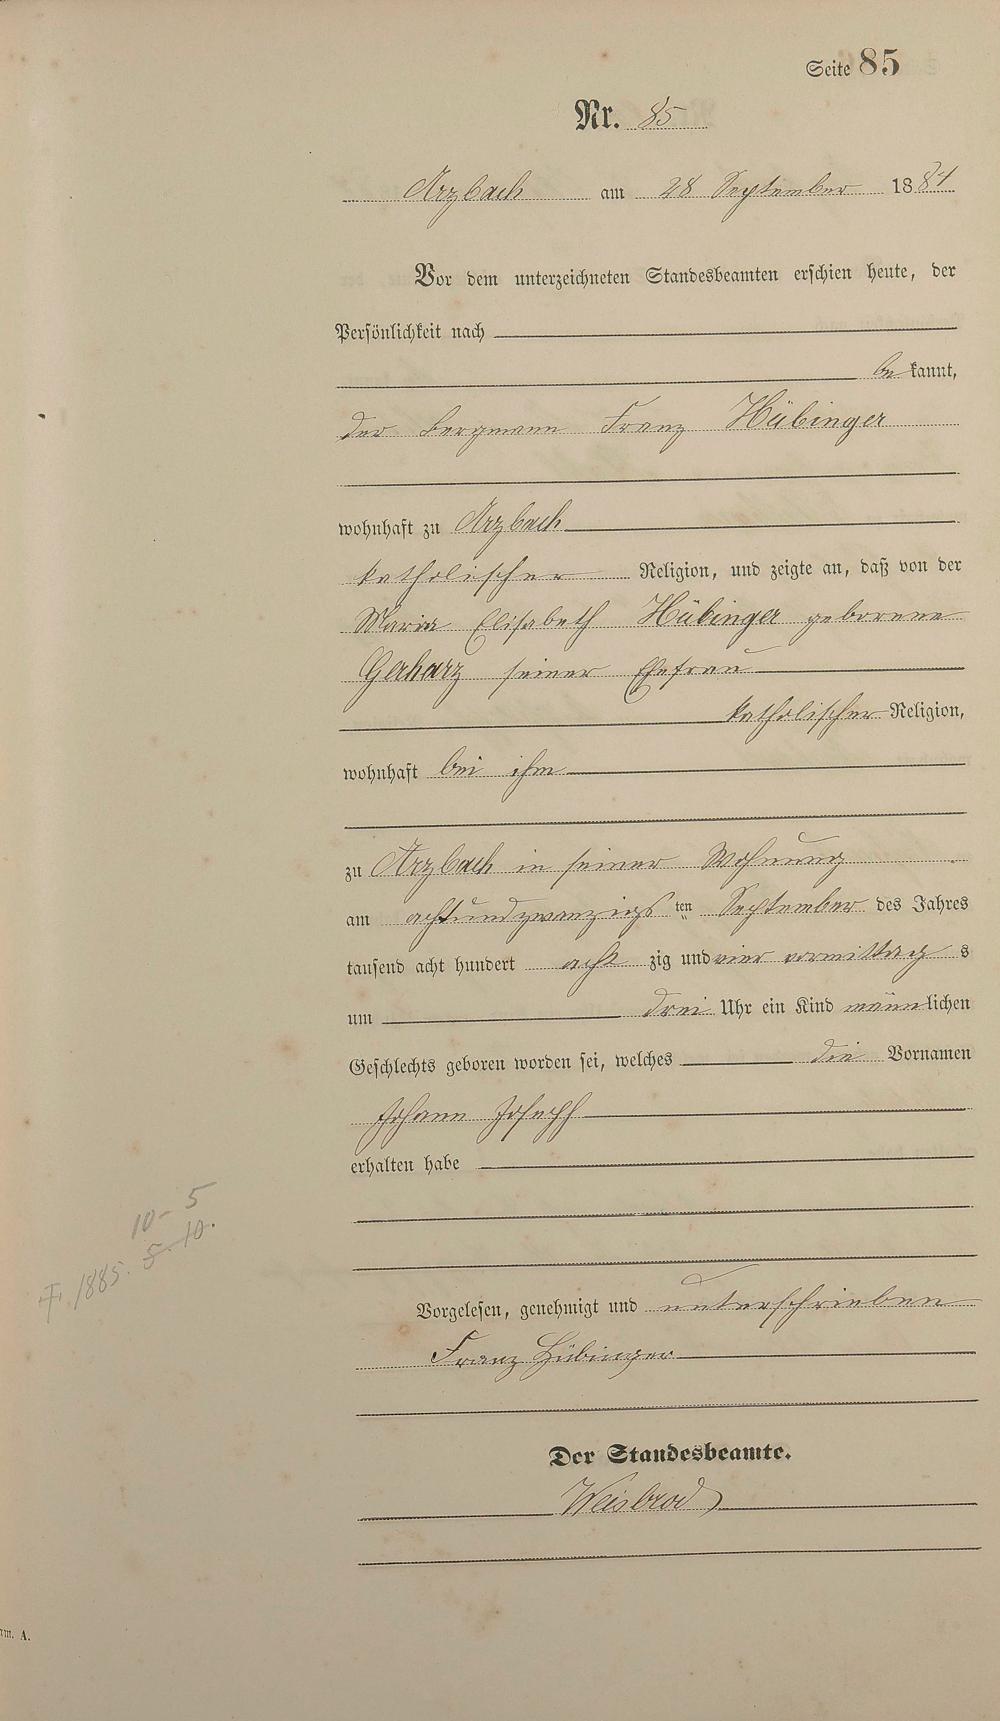 Seite 85
Nr. 85
Arzbach am 28 September 1884
Vor dem unterzeichneten Standesbeamten erschien heute, der
Persönlichkeit nach
be kannt,
der Bergmann Franz Hübinger
wohnhaft zu Arzbach
katholischer Religion, und zeigte an, daß von der
Maria Elisabeth Hübinger geborene
Gerharz seiner Ehefrau
katholischer Religion,
wohnhaft bei ihm
zu Arzbach in seiner Wohnung
am achtundzwanzigs ten September des Jahres
tausend acht hundert acht zig und vier vormittag s
um drei Uhr ein Kind männlichen
Geschlechts geboren worden sei, welches die Vornamen
Johann Joseph
erhalten habe
10-5
5.10.
†. 1885.
Vorgelesen, genehmigt und unterschrieben
Franz Hübinger
Der Standesbeamte.
Weisbrod
rm. A.